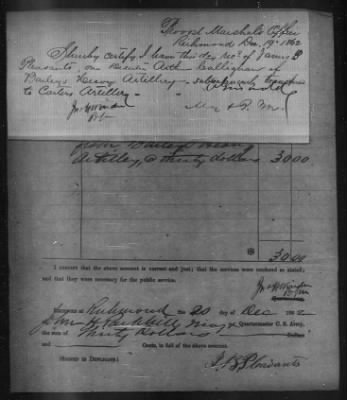 Provost Marshals Office
Richmond Dec. 19th 1862
I hereby certify I have this day recd of James B
Pleasants, one Deserter Arth. Callighan of
Baileys Heavy Artillery - subsequently
to Coits Artillery -
Maj & P. M
from Baileys Heavy
Artillery, @ thirty dollars 30.00
30.00
I CERTIFY that the above account is correct and just; that the services were rendered as stated;
and that they were necessary for the public service.
RECEIVED at Richmond on 20 day of Dec 186 2
John H. Parkhill Maj ge, Quartermaster C. S. Army,
the sum of Thirty Dollars Dollars
and Cents, in full of the above account.
[SIGNED IN DUPLICATE.]
J. B. Pleasants